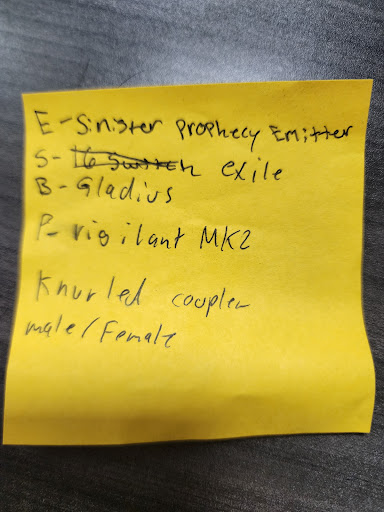 E - Sinister Prophecy Emitter
S - 16 Switch exile
B - Gladius
P - vigilant MK2
Knurled coupler
male/Female